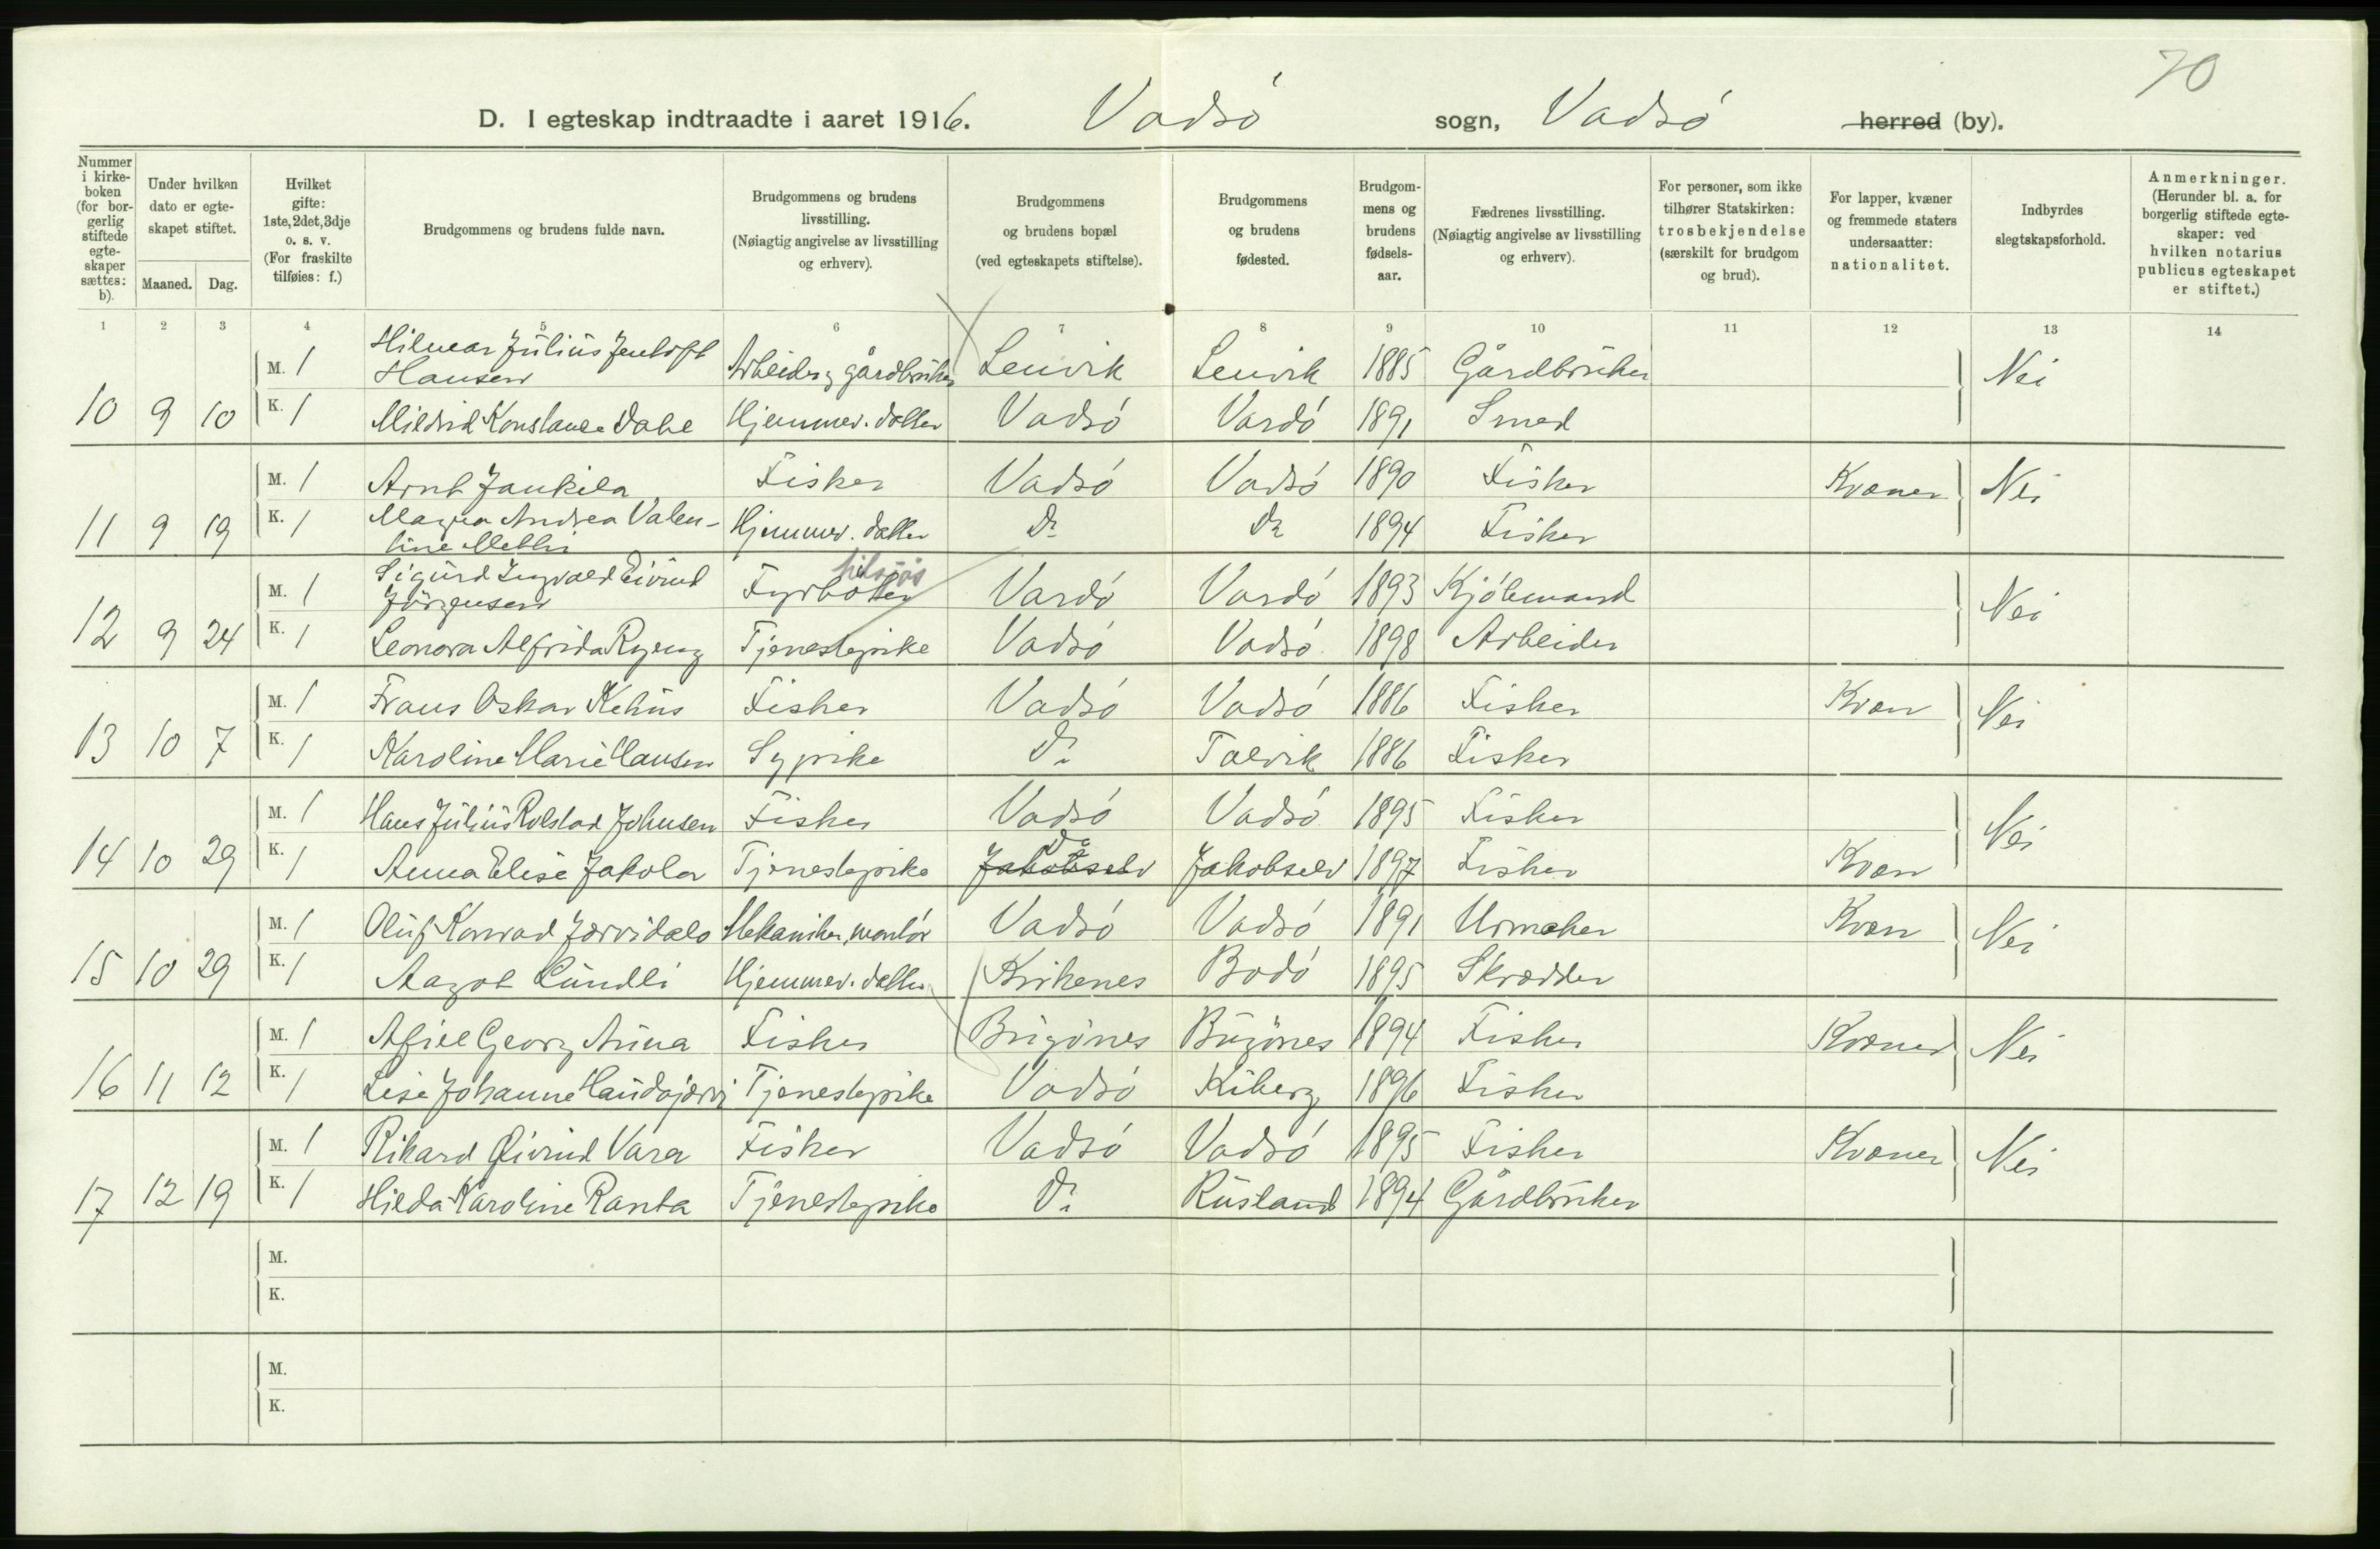 70
D. I egteskap indtraadte i aaret 1916. Vadsö sogn, Vadsö herred (by).
Nummer i kirkeboken (for borgerlig stiftede egteskaper sættes: b).
Under hvilken dato er egteskapet stiftet.
Maaned. Dag.
Hvilket gifte: 1ste, 2det, 3dje o. s. v. (For fraskilte tilføies: f.)
Brudgommens og brudens fulde navn.
Brudgommens og brudens livsstilling. (Nøiagtig angivelse av livsstilling og erhverv).
Brudgommens og brudens bopæl (ved egteskapets stiftelse).
Brudgommens og brudens fødested.
Brudgommens og brudens fødselsaar.
Fædrenes livsstilling. (Nøiagtig angivelse av livsstilling og erhverv).
For personer, som ikke tilhører Statskirken: trosbekjendelse (særskilt for brudgom og brud).
For lapper, kvæner og fremmede staters undersaatter: nationalitet.
Indbyrdes slegtskapsforhold.
Anmerkninger. (Herunder bl. a. for borgerlig stiftede egteskaper: ved hvilken notarius publicus egteskapet er stiftet.)
1 2 3 4 5 6 7 8 9 10 11 12 13 14
M. 1 Hilmar Julius Jentoft Hansen Arbeider, gårdbruker Lenvik Lenvik 1885 Gårdbruker Nei
10 9 10 K. 1 Mildrid Konstanse Dahl Hjemmev. datter Vadsö Vardö 1891 Smed
M. 1 Arnt Jankila Fisker Vadsö Vadsö 1890 Fisker Kvæner Nei
11 9 19 K. 1 Magna Andrea Valentine Hjemmev. datter Do Do 1894 Fisker
M. 1 Sigurd Ingvald Eivind Jörgensen Fyrböter tilsjös Vardö Vardö 1893 Kjöbmand Nei
12 9 24 K. 1 Leonora Alfrida Ryeng Tjenestepike Vadsö Vadsö 1898 Arbeider
M. 1 Frans Oskar Kehus Fisker Vadsö Vadsö 1886 Fisker Kvæn Nei
13 10 7 K. 1 Karoline Marie Hansen Sypike Do Talvik 1886 Fisker
M. 1 Hans Julius Rolstad Johnsen Fisker Vadsö Vadsö 1895 Fisker Nei
14 10 29 K. 1 Anna Elise Jakola Tjenestepike Jakobselv Do Jakobselv 1897 Fisker Kvæn
M. 1 Oluf Konrad Jærvidalo Mekaniker, montör Vadsö Vadsö 1891 Urmaker Kvæn Nei
15 10 29 K. 1 Aagot Lundli Hjemmev. datter Kirkenes Bodö 1895 Skrædder
M. 1 Georg Fisker Bugönes Bugönes 1894 Fisker Kvæner Nei
16 11 12 K. 1 Lise Johanne Haudajærvi Tjenestepike Vadsö Kiberg 1896 Fisker
M. 1 Rikard Øivind Vara Fisker Vadsö Vadsö 1895 Fisker Kvæner Nei
17 12 19 K. 1 Hilda Karoline Ranta Tjenestepike Do Rusland 1894 Gårdbruker
M.
K.
M.
K.